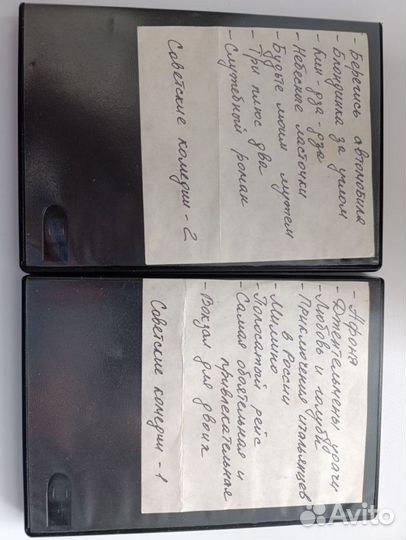 - Берегись автомобиля
- Блондинка за углом
- Кин-дза-дза
- Небесные ласточки
- Будьте моим мужем
- Три плюс два
- Служебный роман
Советские комедии - 2
- Афоня
- Джентельмены удачи
- Любовь и голуби
- Приключения итальянцев
в России
- Мимино
- Полосатый рейс
- Самая обаятельная и
привлекательная
- Вокзал для двоих
Советские комедии - 1
Avito